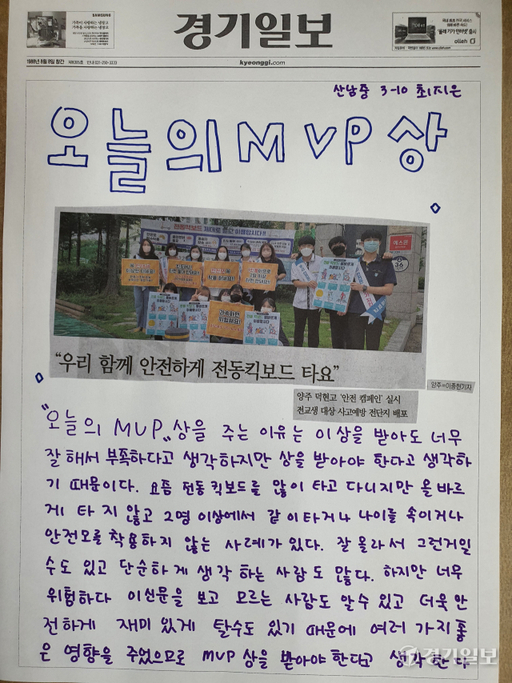 경기일보
kyeonggi.com
1988년 8월 8일 창간
olleh
산남중 3-10 최지은
오늘의 MVP 상
"우리 함께 안전하게 전동킥보드 타요"
양주=이종현기자
양주 덕현고 '안전 캠페인' 실시
전교생 대상 사고예방 전단지 배포
"오늘의 MVP" 상을 주는 이유는 이상을 받아도 너무
잘해서 부족하다고 생각하지만 상을 받아야 한다고 생각하
기 때문이다. 요즘 전동킥보드를 많이 타고 다니지만 올바르
게 타지 않고 2명 이상에서 같이 타거나 나이를 속이거나
안전모를 착용하지 않는 사례가 있다. 잘 몰라서 그런거일
수도 있고 단순하게 생각 하는 사람도 많다. 하지만 너무
위험하다 이신문을 보고 모르는 사람도 알수 있고 더욱 안
전하게 재미 있게 탈수도 있기 때문에 여러 가지 좋
은 영향을 주었으므로 MVP 상을 받아야 한다고 생각한다
경기일보